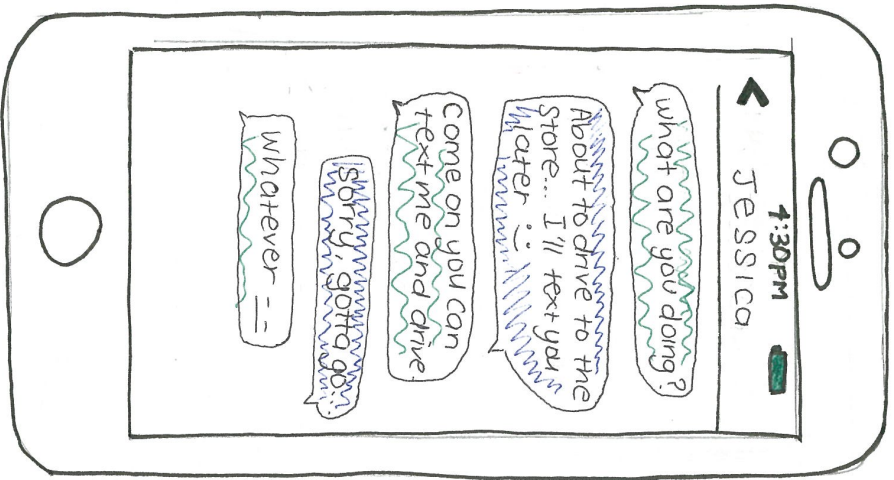 4:30PM
Jessica
what are you doing?
About to drive to the
store... I'll text you
later :)
Come on you can
text me and drive.
Sorry, gotta go!
whatever =_=